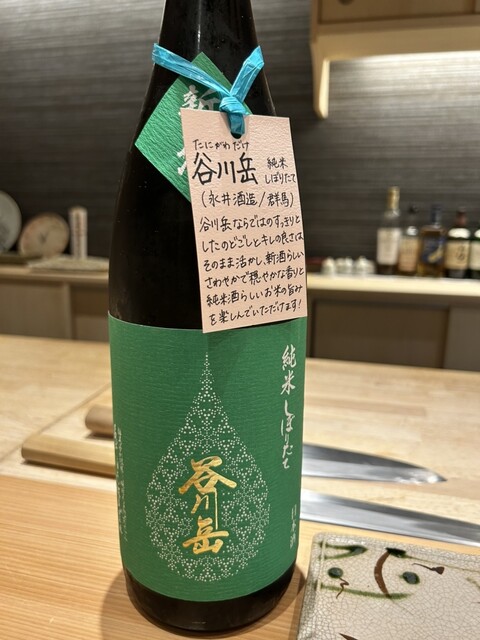 新
たにがわだけ
谷川岳 純米
しぼりたて
(永井酒造/群馬)
谷川岳ならではのすっきりと
したのどごしとキレの良さは
そのまま活かし、新酒らしい
さわやかで穏やかな香りと
純米酒らしいお米の旨み
を楽しんでいただけます!
純米しぼりたて
谷川岳
日本酒